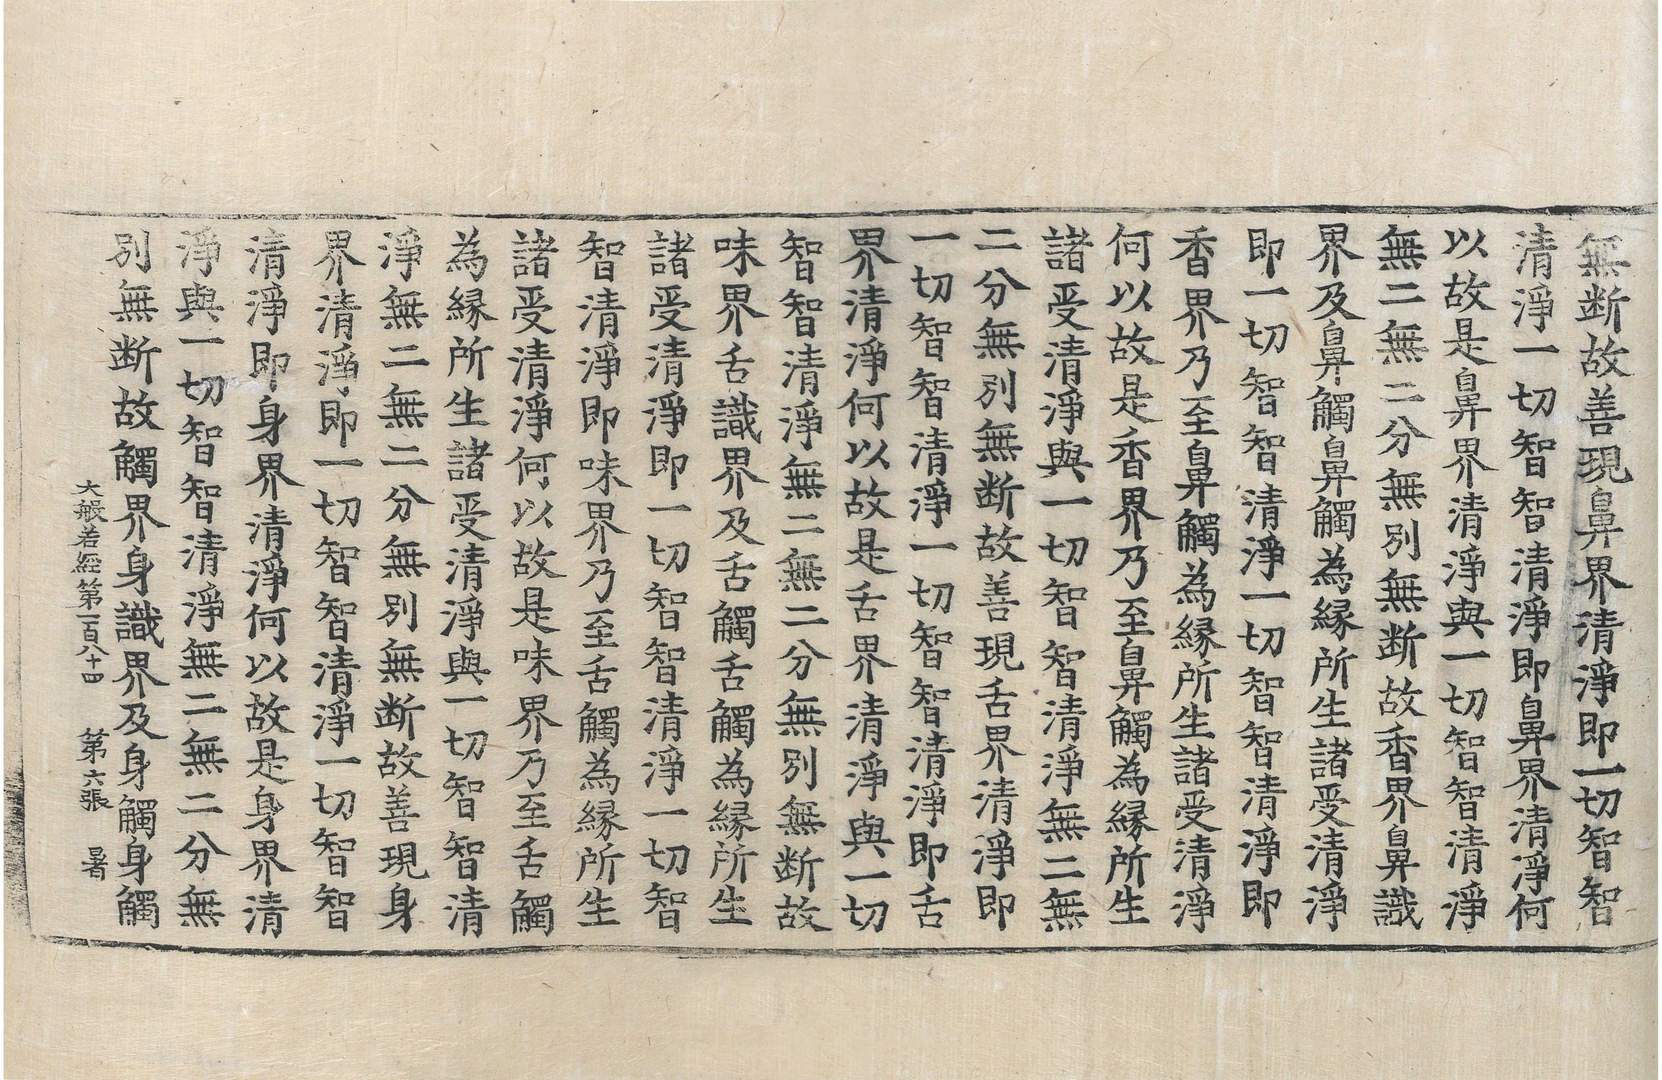 無断故善現鼻界清淨即一切智智
清淨一切智智清淨即鼻界清淨何
以故是鼻界清淨與一切智智清淨
無二無二分無別無断故香界鼻識
界及鼻觸鼻觸為縁所生諸受清淨
即一切智智清淨一切智智清淨即
香界乃至鼻觸為縁所生諸受清淨
何以故是香界乃至鼻觸為縁所生
諸受清淨與一切智智清淨無二無
二分無別無断故善現舌界清淨即
一切智智清淨一切智智清淨即舌
界清淨何以故是舌界清淨與一切
智智清淨無二無二分無別無断故
味界舌識界及舌觸舌觸為縁所生
諸受清淨即一切智智清淨一切智
智清淨即味界乃至舌觸為縁所生
諸受清淨何以故是味界乃至舌觸
為縁所生諸受清淨與一切智智清
淨無二無二分無別無断故善現身
界清淨即一切智智清淨一切智智
清淨即身界清淨何以故是身界清
淨與一切智智清淨無二無二分無
別無断故觸界身識界及身觸身觸
大般若經第一百八十四 第六張 暑